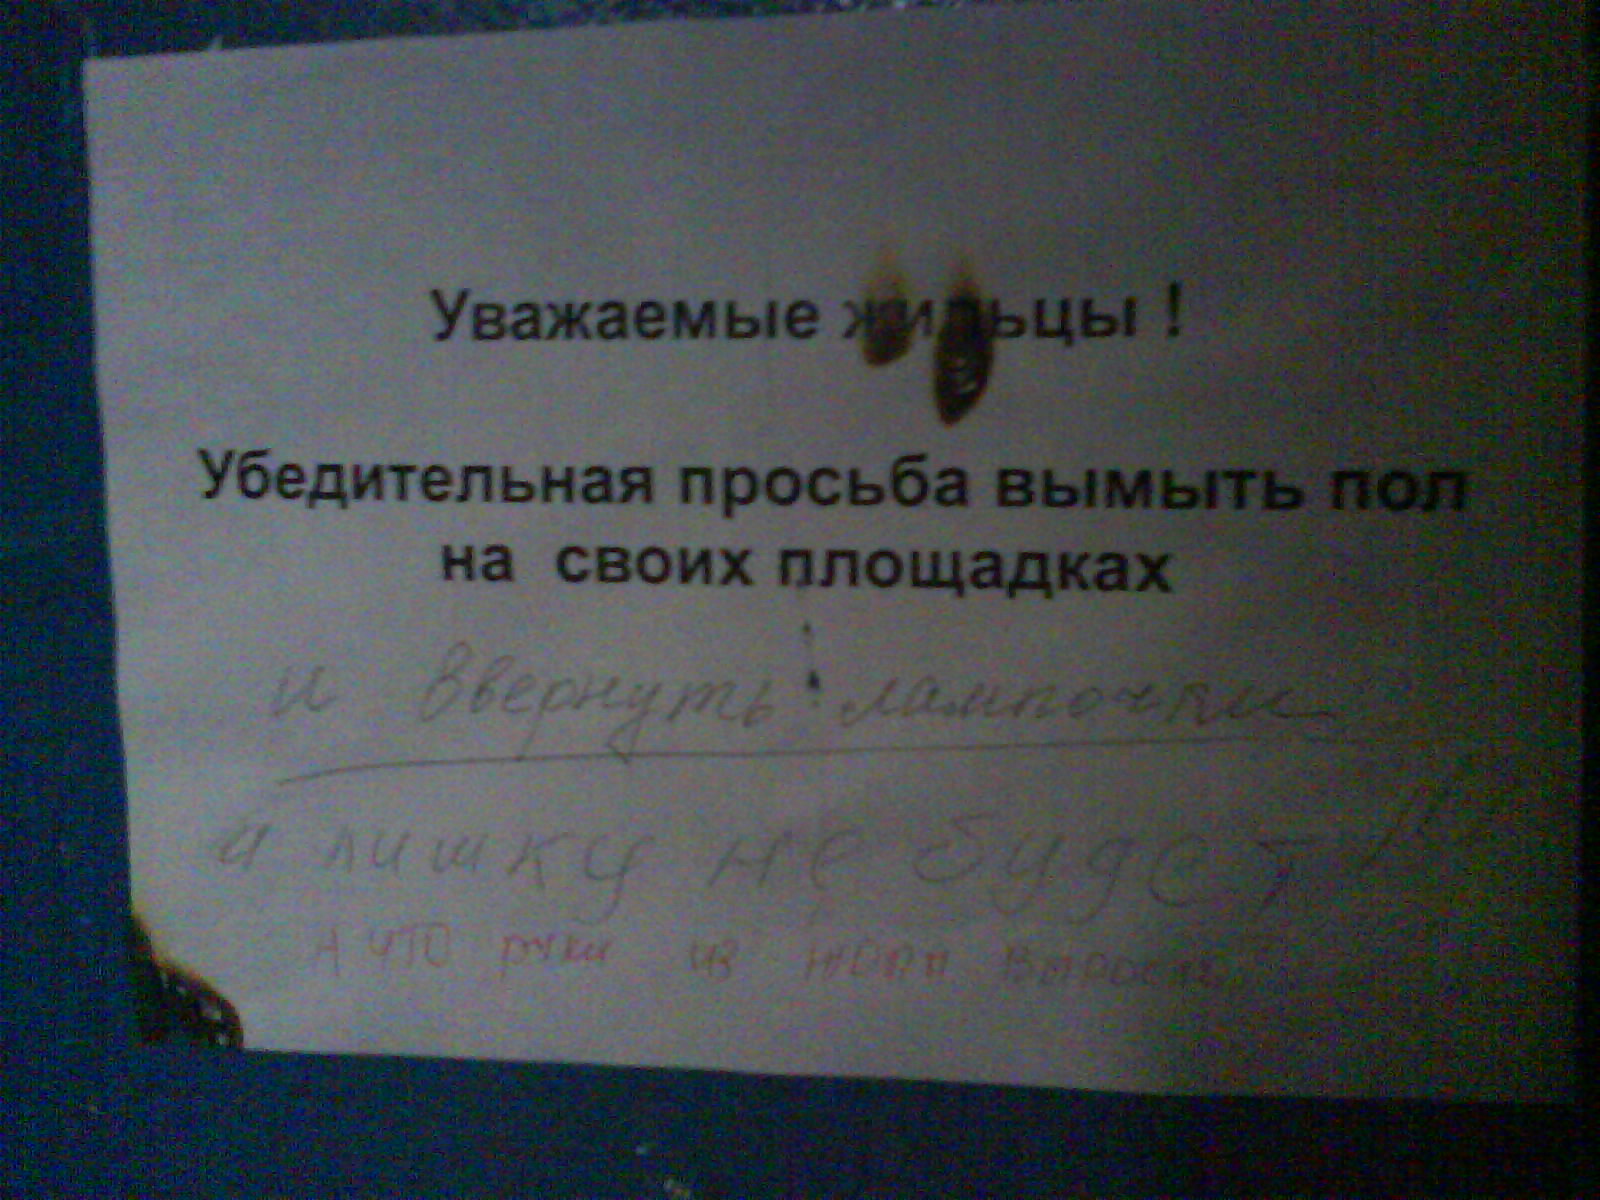 Уважаемые жильцы !
Убедительная просьба вымыть пол
на своих площадках
и ввернуть лампочки
а лишку не будет
А что руки из жопы выросли